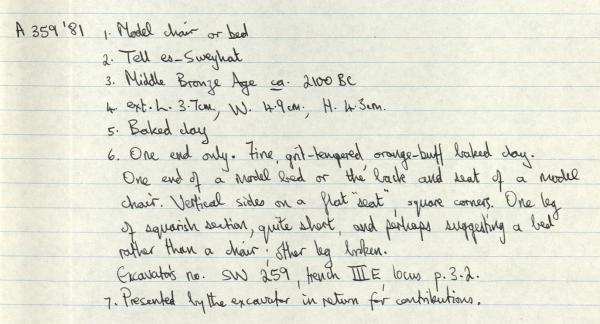 A 359 '81 1. Model chair or bed
2. Tell es-Sweyhat
3. Middle Bronze Age ca. 2100 BC
4. ext. L. 3.7cm, W. 4.9cm, H. 4.3cm.
5. Baked clay
6. One end only. Fine, grit-tempered, orange-buff baked clay.
One end of a model bed or the back and seat of a model
chair. Vertical sides on a flat "seat", square corners. One leg
of squarish section, quite short, and perhaps suggesting a bed
rather than a chair; other leg broken.
Excavator's no. SW 259, trench III E, locus p.3.2.
7. Presented by the excavator in return for contributions.